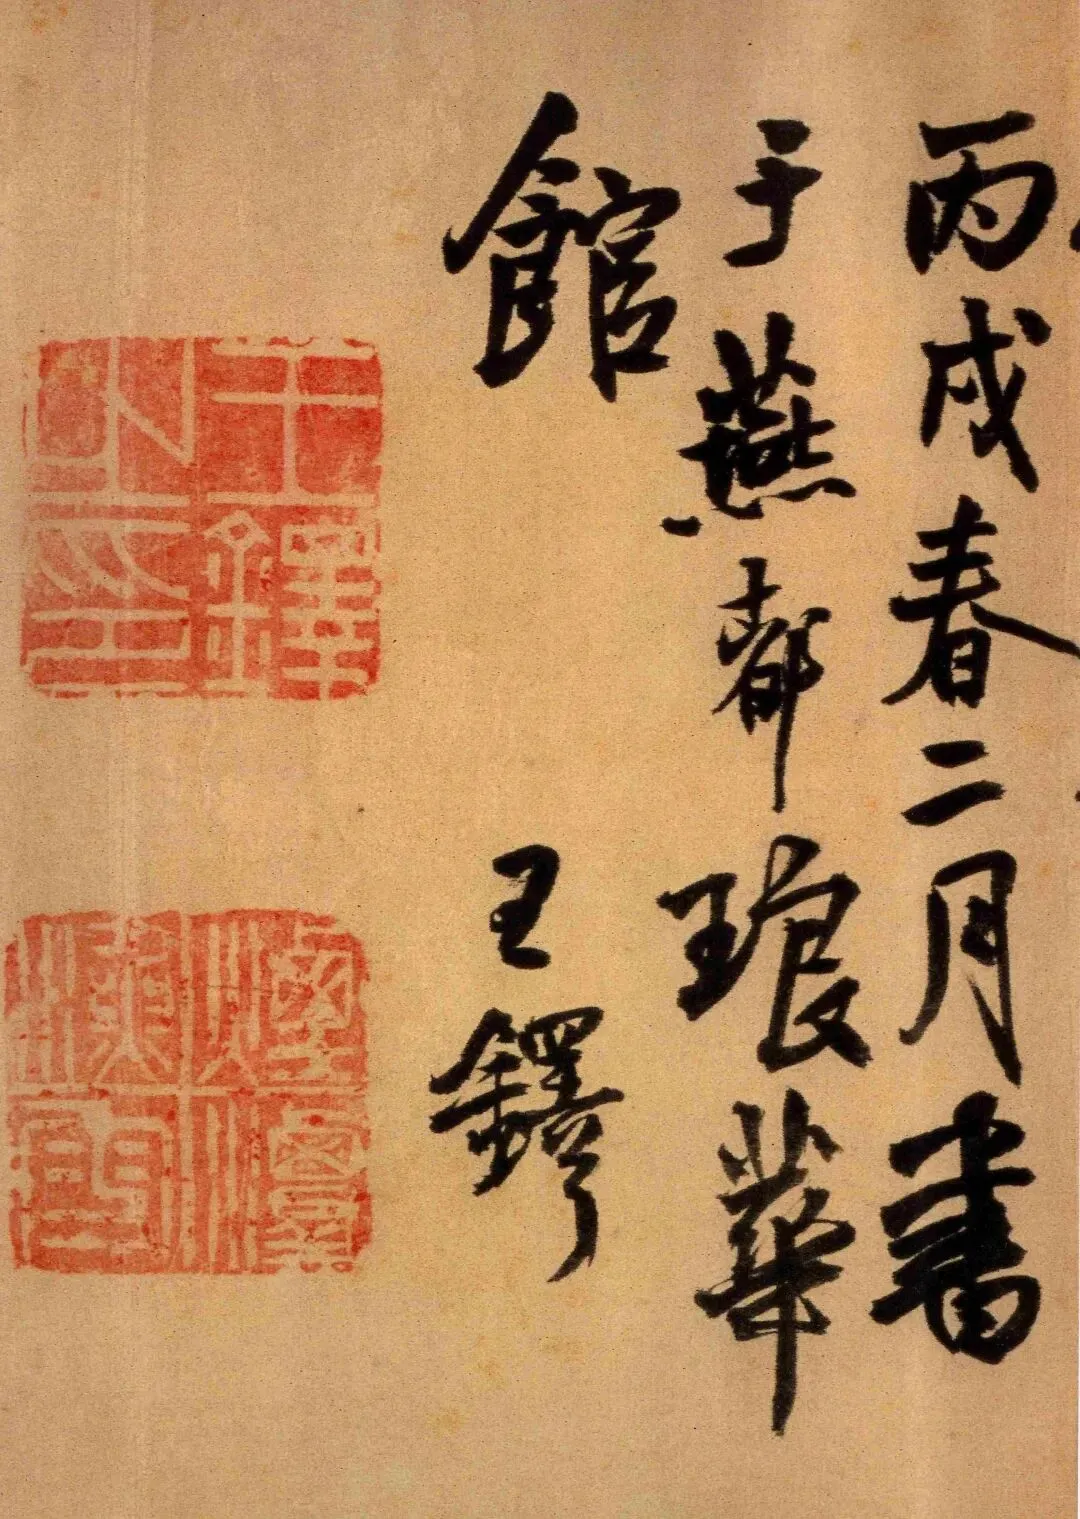 丙戌春二月書
于燕都琅華
館 王鐸
王鐸之印